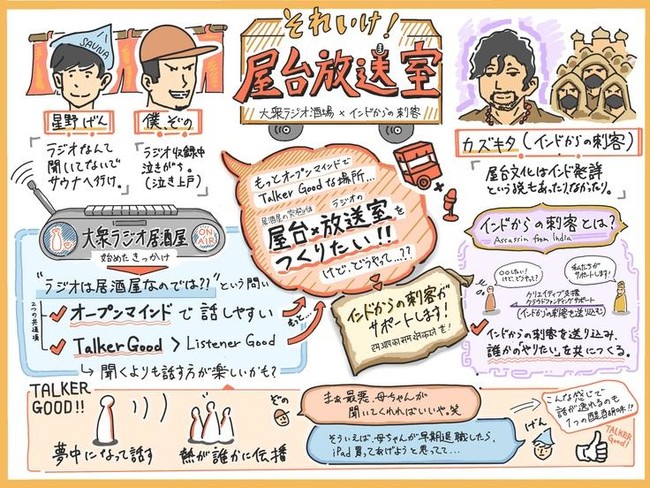 それいけ!
屋台放送室
大衆ラジオ酒場×インドからの刺客
SAUNA
星野げん
ラジオなんて
聞いてないで
サウナへ行け。
僕、ぞの
ラジオ収録中
泣きがち。
(泣き上戸)
カズキタ(インドからの刺客)
屋台文化はインド発祥
という説もあったりなかったり。
大衆ラジオ居酒屋
ON AIR
始めたきっかけ
"ラジオは居酒屋なのでは??"という問い
2つの共通項
オープンマインドで話しやすい
Talker Good > Listener Good
↳聞くよりも話す方が楽しいかも?
もっと…
もっとオープンマインドで
Talker Goodな場所…
ラジオの
屋台×放送室を
つくりたい!!
けど、どうやって…??
インドからの刺客が
サポートします!
インドからの刺客とは?
Assassin from India
私たちが
サポートします!
クリエイティブ支援
クラウドファンディングサポート
(インドからの刺客を送り込む)
インドからの刺客を送り込み、
誰かの「やりたい」を共につくる。
TALKER
GOOD!!
夢中になって話す
熱が誰かに伝播
ぞの
まぁ最悪、母ちゃんが
聞いてくれればいいや。笑
そういえば、母ちゃんが早期退職したら、
iPad買ってあげようと思ってて…
げん
こんな感じで
話が逸れるのも
1つの醍醐味!!
TALKER
Good!